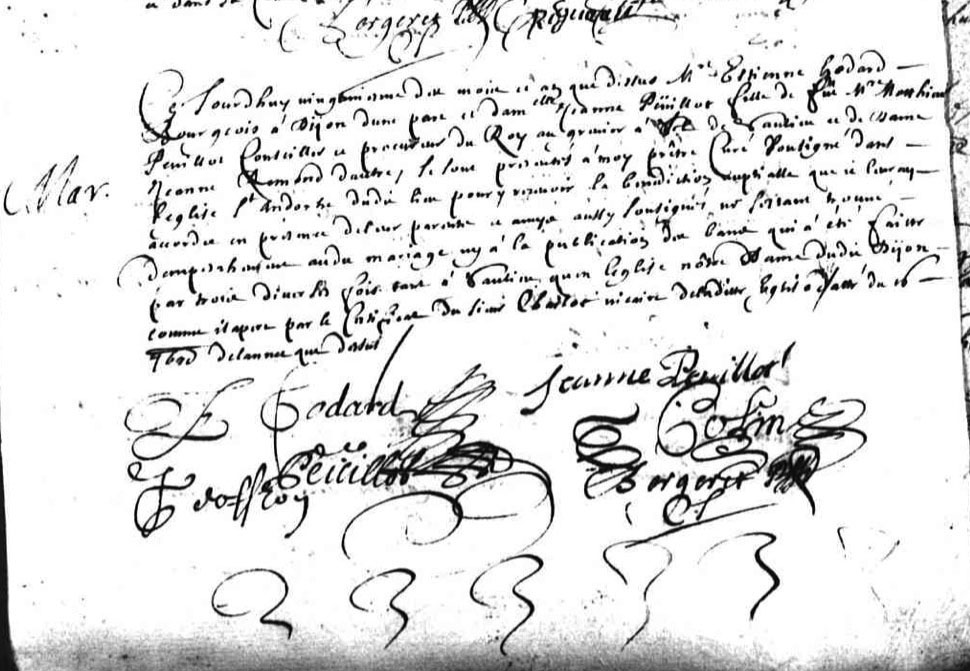 Bergeret
Mar.
Ce Jourdhuy vingtiesme des mois et an que dessus Mre Estienne Godard
Bourgeois à Dijon dune part et damlle Jeanne Peuillot fille de feu Mre Mathieu
Peuillot Conseiller et procureur du Roy au grenier à Sel de Saulieu et de Dame
Jeanne Remond dautre, se sont presentés à moy prêtre Curé Soussigné dans
leglise St Andoche dudit lieu pour y recevoir la benediction nuptialle que je leur ay
accordée en presence de leur parents et amys aussy soussignés ne sestant trouvé
dempeschement audit mariage ny à la publication des bans qui a été faitte
par trois diverses fois tant à Saulieu quen leglise nôtre Dame dudit Dijon
comme il apert par le Certificat du sieur Charlot vicaire de laditte Eglise datté du 16
7bre de lannee que dessus
E Godard
Jeanne Peuillot
Peuillot
Cosin
Jeoffroy
Bergeret